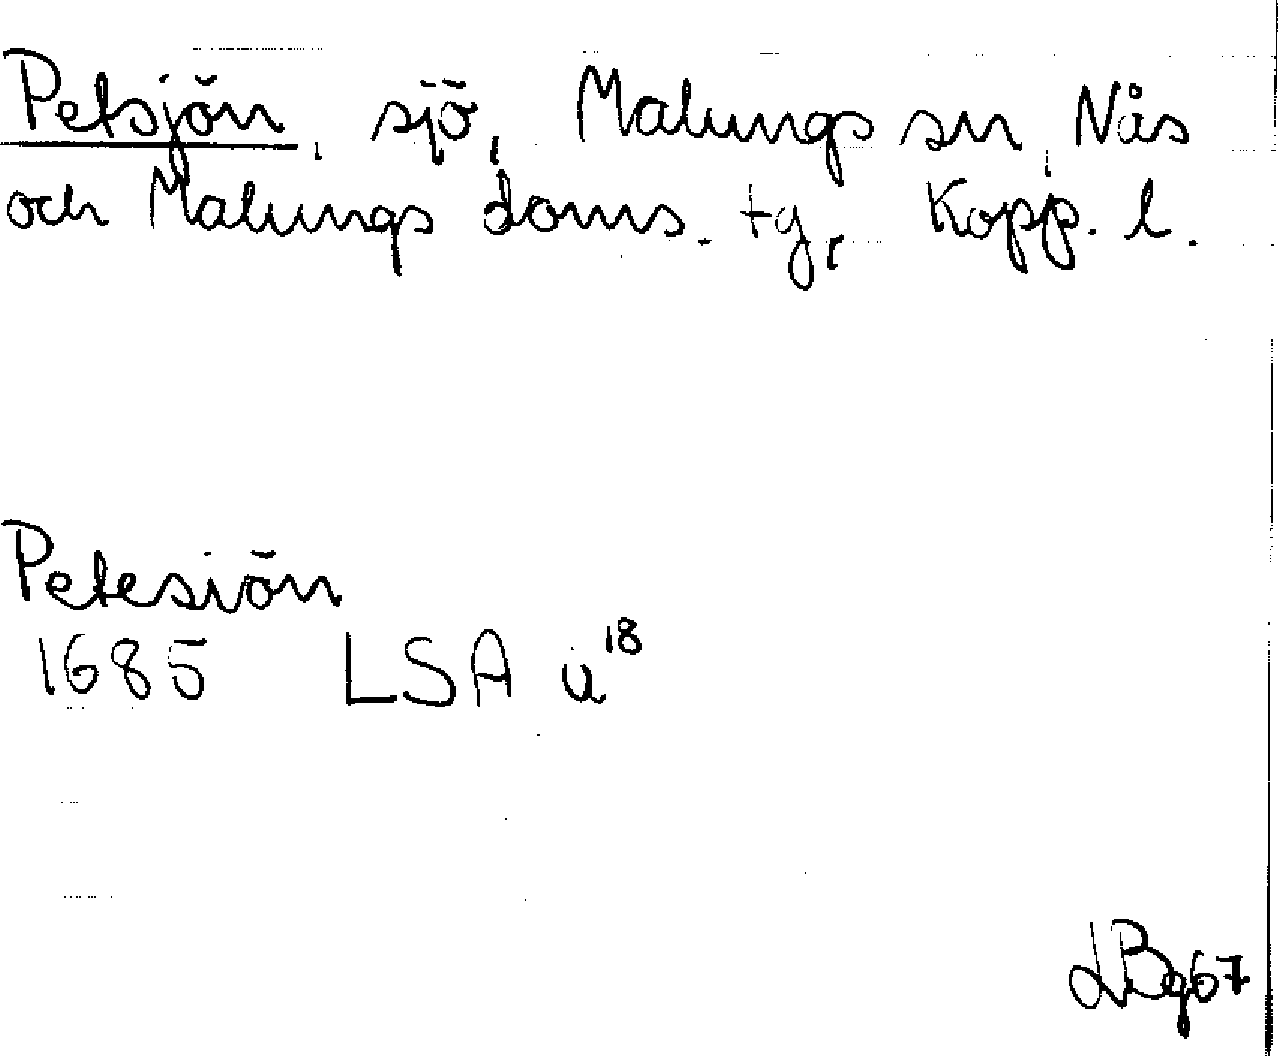 Petsjön, sjö, Malungs sn, Nås
och Malungs doms. tg, Kopp. l.
Petesiön
1685 LSA u¹⁸
LBg67